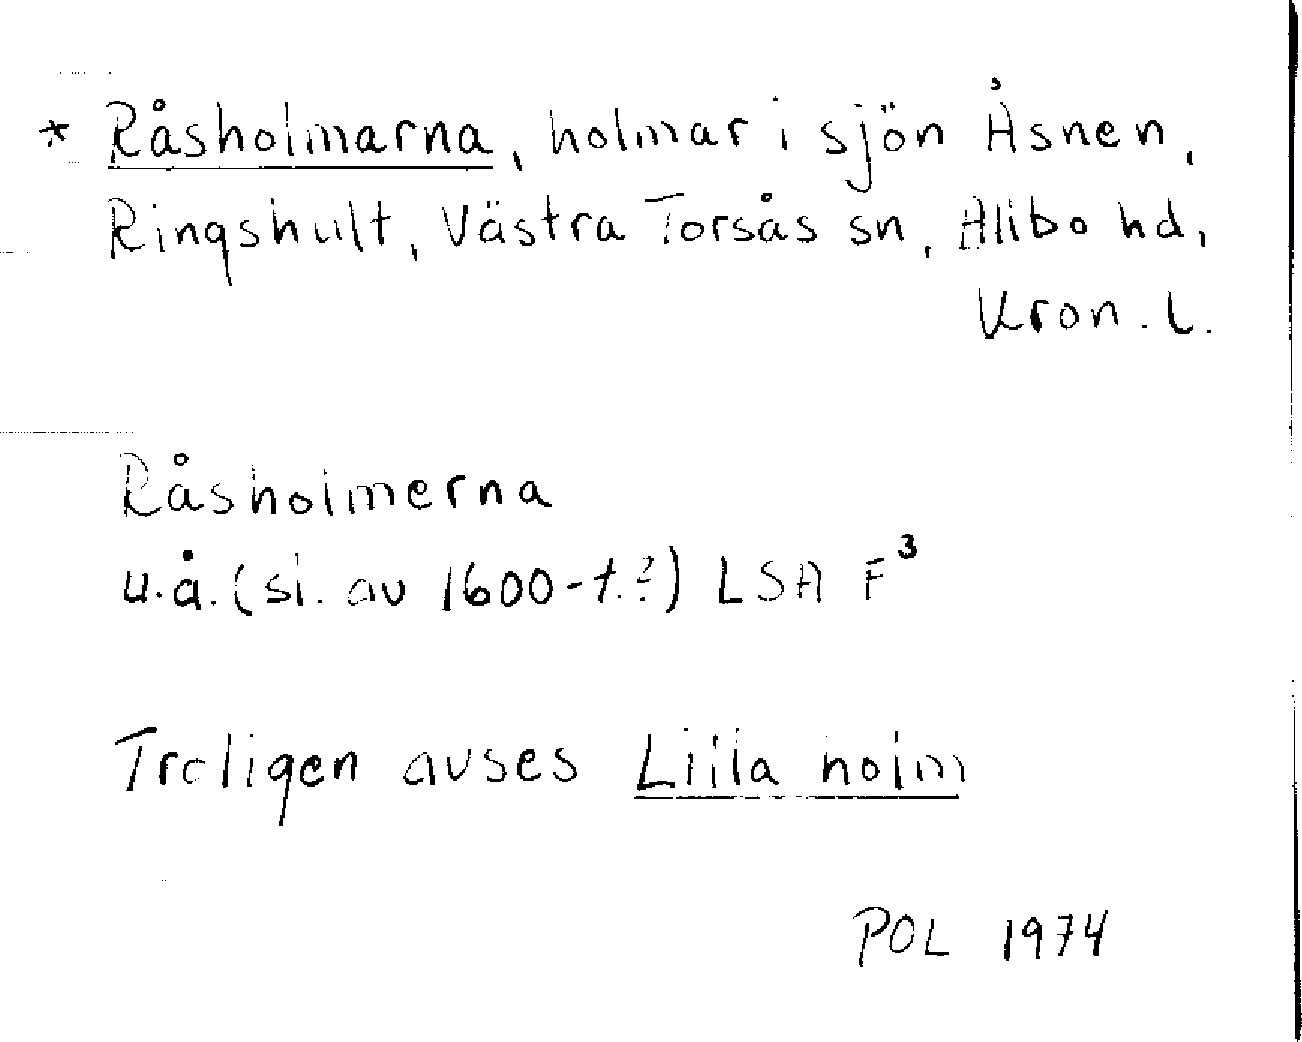 * Råsholmarna, holmar i sjön Åsnen,
Ringshult, Västra Torsås sn, Allbo hd,
Kron. l.
Råsholmerna
u.å. (sl. av 1600-t.?) LSA F³
Troligen avses Lilla holm
POL 1974